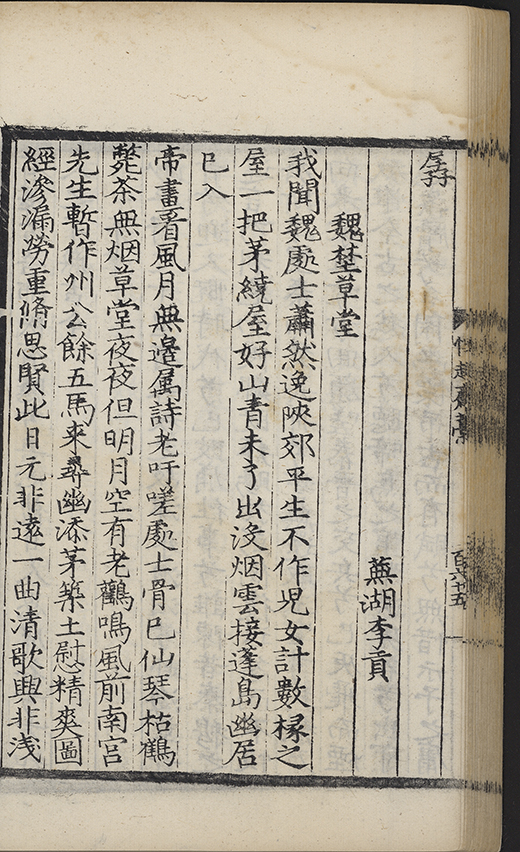 孱
蕪湖李貢
魏埜草堂
我聞魏處士蕭然逸陝郊平生不作児女計數椽之
屋一把茅繞屋好山青未了出没烟雲接蓬島幽居
已入
帝畫看風月無邉属詩老吁嗟處士骨已仙琴枯鶴
斃茶無烟草堂夜夜但明月空有老鸛鳴風前南宫
先生暫作州公餘五馬来尋幽添茅築土慰精爽圖
經滲漏勞重脩思賢此日元非遠一曲清歌興非浅
百六十五